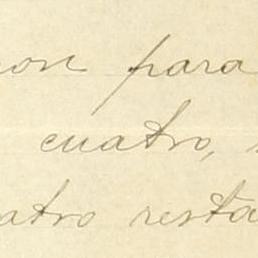 on para
cuatro,
atro resta